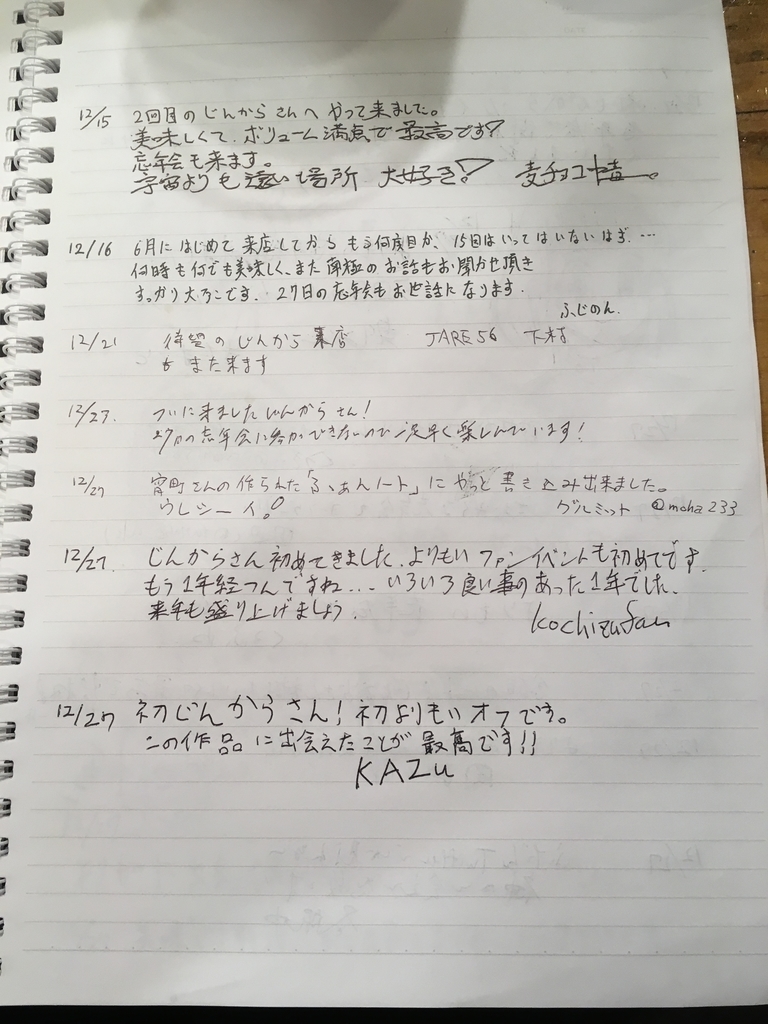 12/15 2回目のじんからさんへ やって来ました。
美味しくて、ボリューム満点で最高です!
忘年会も来ます。
宇宙よりも遠い場所 大好き! 麦チョコ
12/16 6月にはじめて来店してから もう何度目か、15回はいってはいないはず…
何時も何でも美味しく、また南極のお話もお聞かせ頂き
すっかり大ファンです。27日の忘年会もお世話になります。
ふじのん.
12/21 待望のじんから来店 JARE56 下村
また来ます
12/23. ついに来ましたじんからさん!
27日の忘年会に参加できないので一足早く楽しんでいます!
12/27 宵町さんの作られた「ふぁんノート」にやっと書き込み出来ました。
ウレシーイ。 グルミット @moha233
12/27. じんからさん初めてきました。よりもいファンイベントも初めてです。
もう1年経つんですね... いろいろ良い事のあった1年でした。
来年も盛り上げましょう.
kochizufau
12/27 初じんからさん!初よりもいオフです。
この作品に出会えたことが最高です!!
KAZu